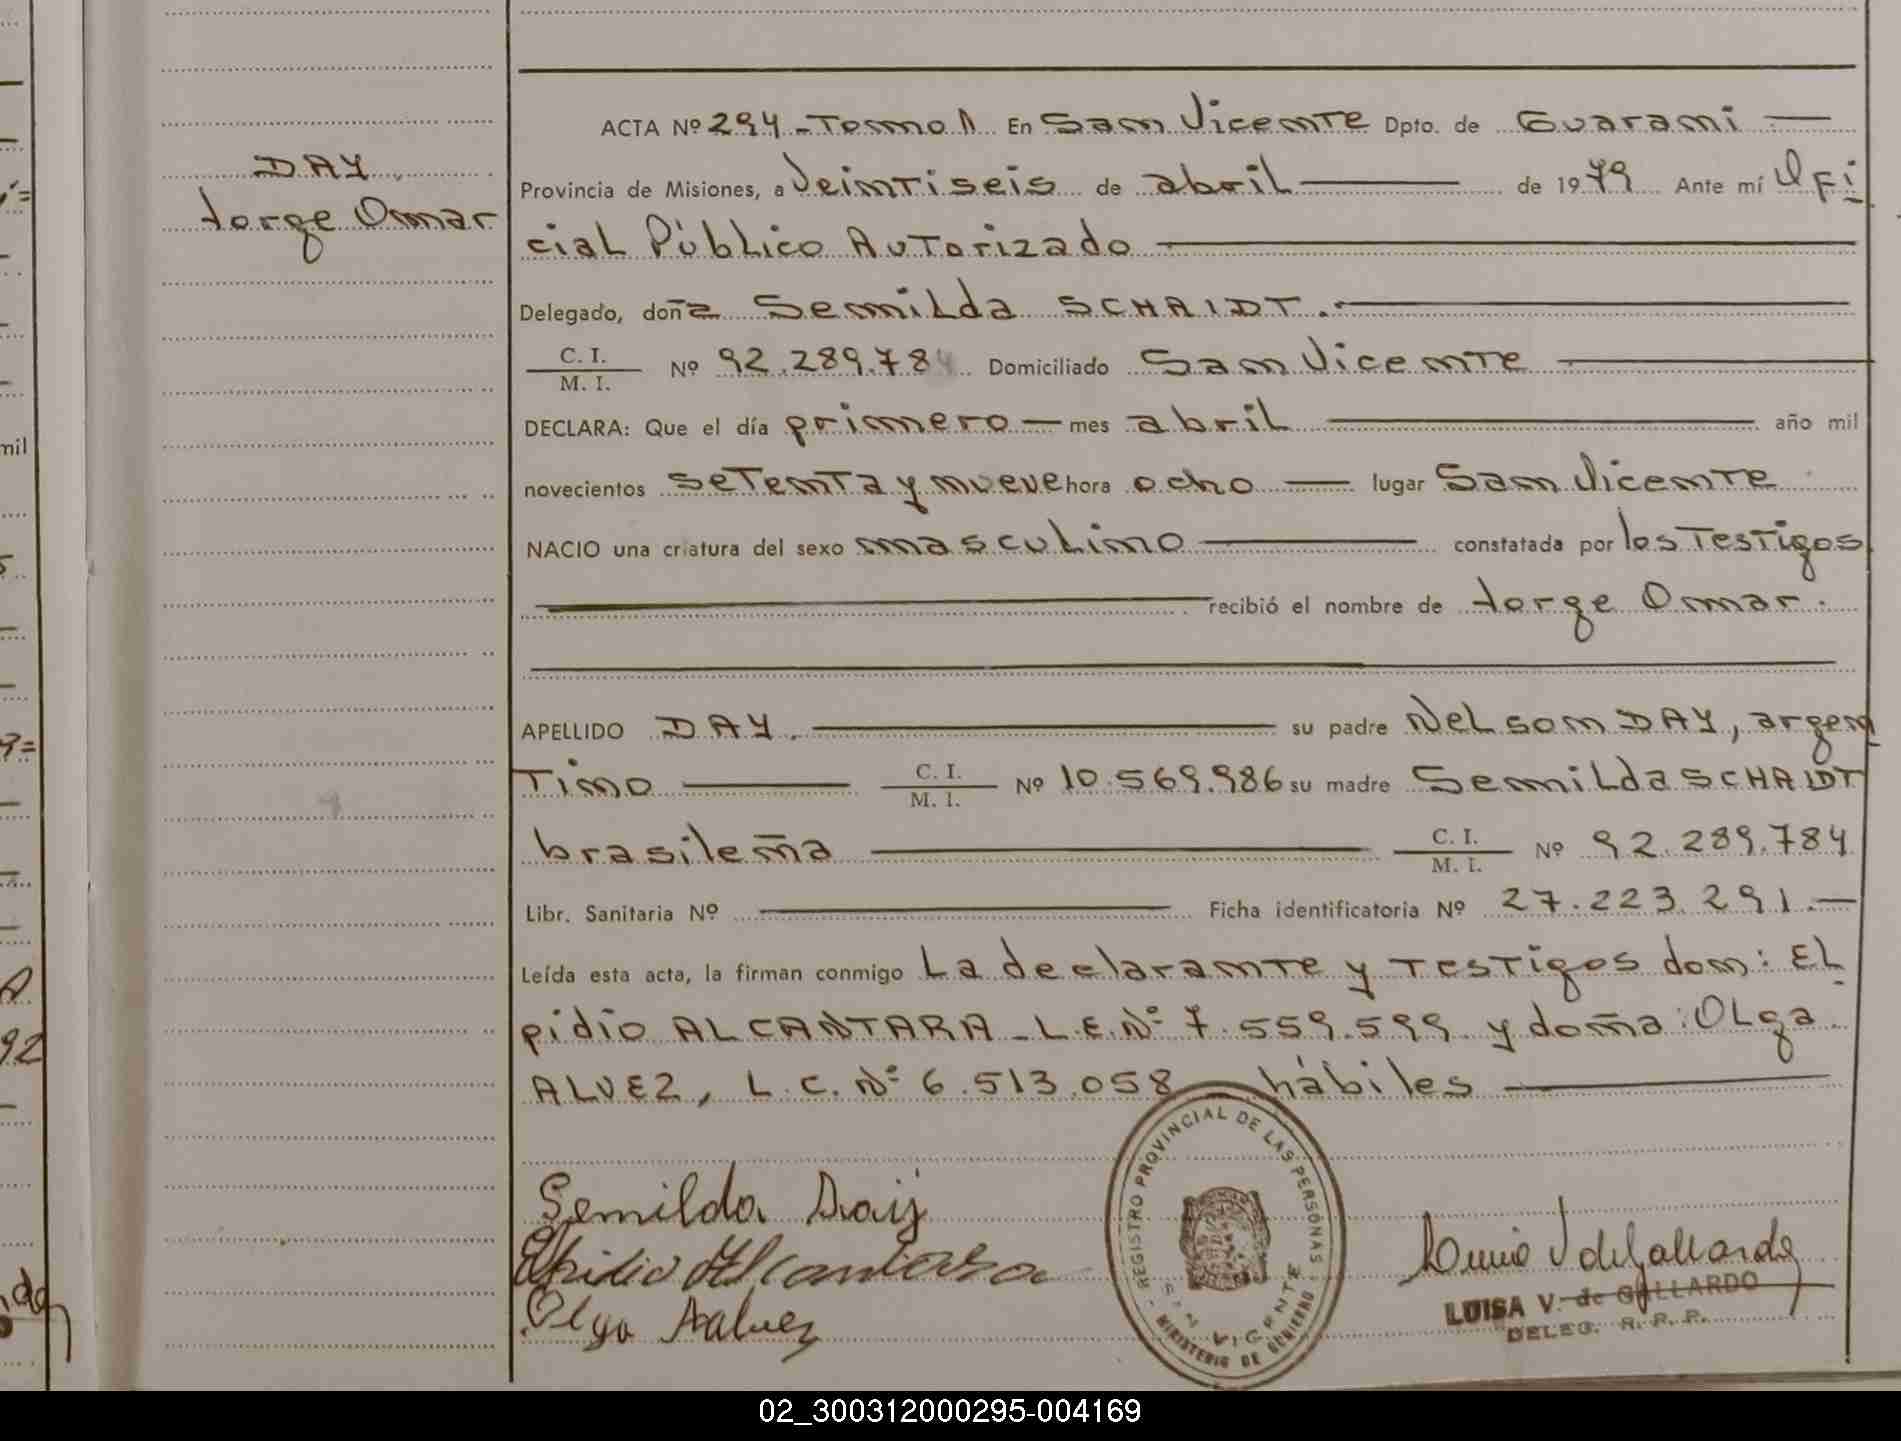 DAY
Jorge Omar
ACTA Nº 294 - Tomo 1 En San Vicente Dpto. de Guarani
Provincia de Misiones, a Veintiseis de abril de 1979 Ante mí Ofi
cial Público Autorizado
Delegado, doña Semilda SCHAIDT.
C. I.
M. I. Nº 92.289.784 Domiciliado San Vicente
DECLARA: Que el día primero mes abril año mil
novecientos setenta y nueve hora ocho lugar San Vicente
NACIO una criatura del sexo masculino constatada por los Testigos
recibió el nombre de Jorge Omar.
APELLIDO DAY. su padre Nelson DAY, argen
tino C. I. M. I. Nº 10.569.986 su madre Semilda SCHAIDT
brasileña C. I. M. I. Nº 92.289.784
Libr. Sanitaria Nº Ficha identificatoria Nº 27.223.291.-
Leída esta acta, la firman conmigo La declarante y Testigos don: EL
pidio ALCANTARA - L.E.Nº 7.559.599 y doña: Olga
ALVEZ, L.C. Nº 6.513.058 hábiles
Semilda Day
Elpidio Alcantara
Olga Aalvez
REGISTRO PROVINCIAL DE LAS PERSONAS
SAN VICENTE
MINISTERIO DE GOBIERNO
Luisa V de Gallardo
LUISA V. de GALLARDO
DELEG. R. P. P.
mil
92
02_300312000295-004169